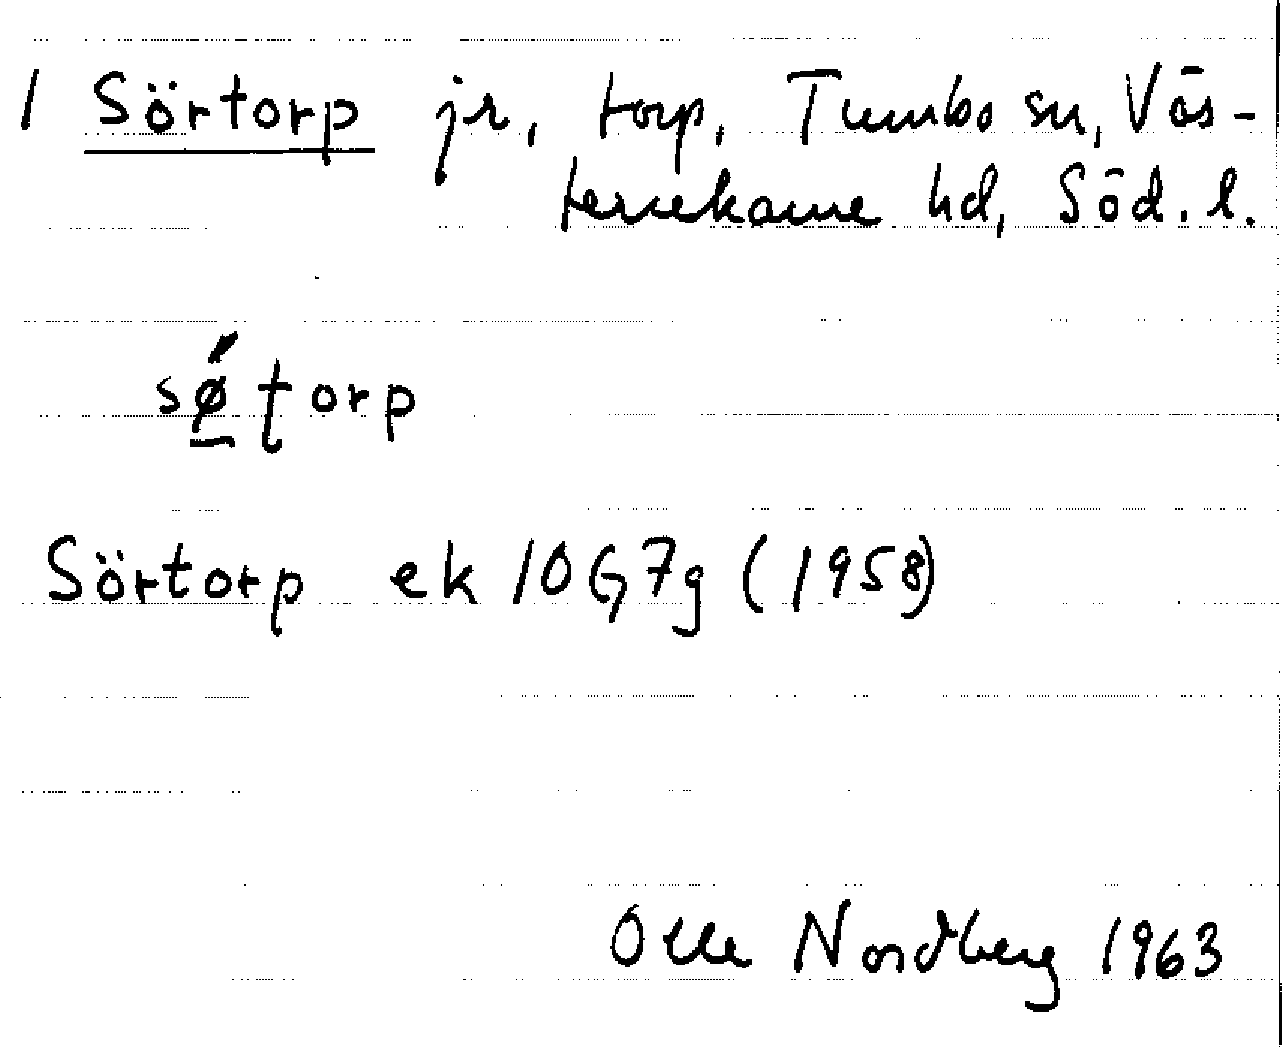 1 Sörtorp jr, torp, Tumbo sn, Väs-
terrekarne hd, Söd. l.
sǿ̲ʈorp
Sörtorp ek 10G7g (1958)
Olle Nordberg 1963